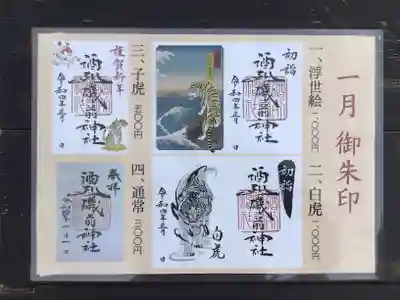 一月 御朱印
一、浮世絵 一、000円
初詣
酒列磯前神社
令和四年一月 日
二、白虎 一、000円
初詣
酒列磯前神社
令和四年一月 日
白虎
三、子虎 五00円
謹賀新年
酒列磯前神社
令和四年一月 日
四、通常 三00円
奉拝
酒列磯前神社